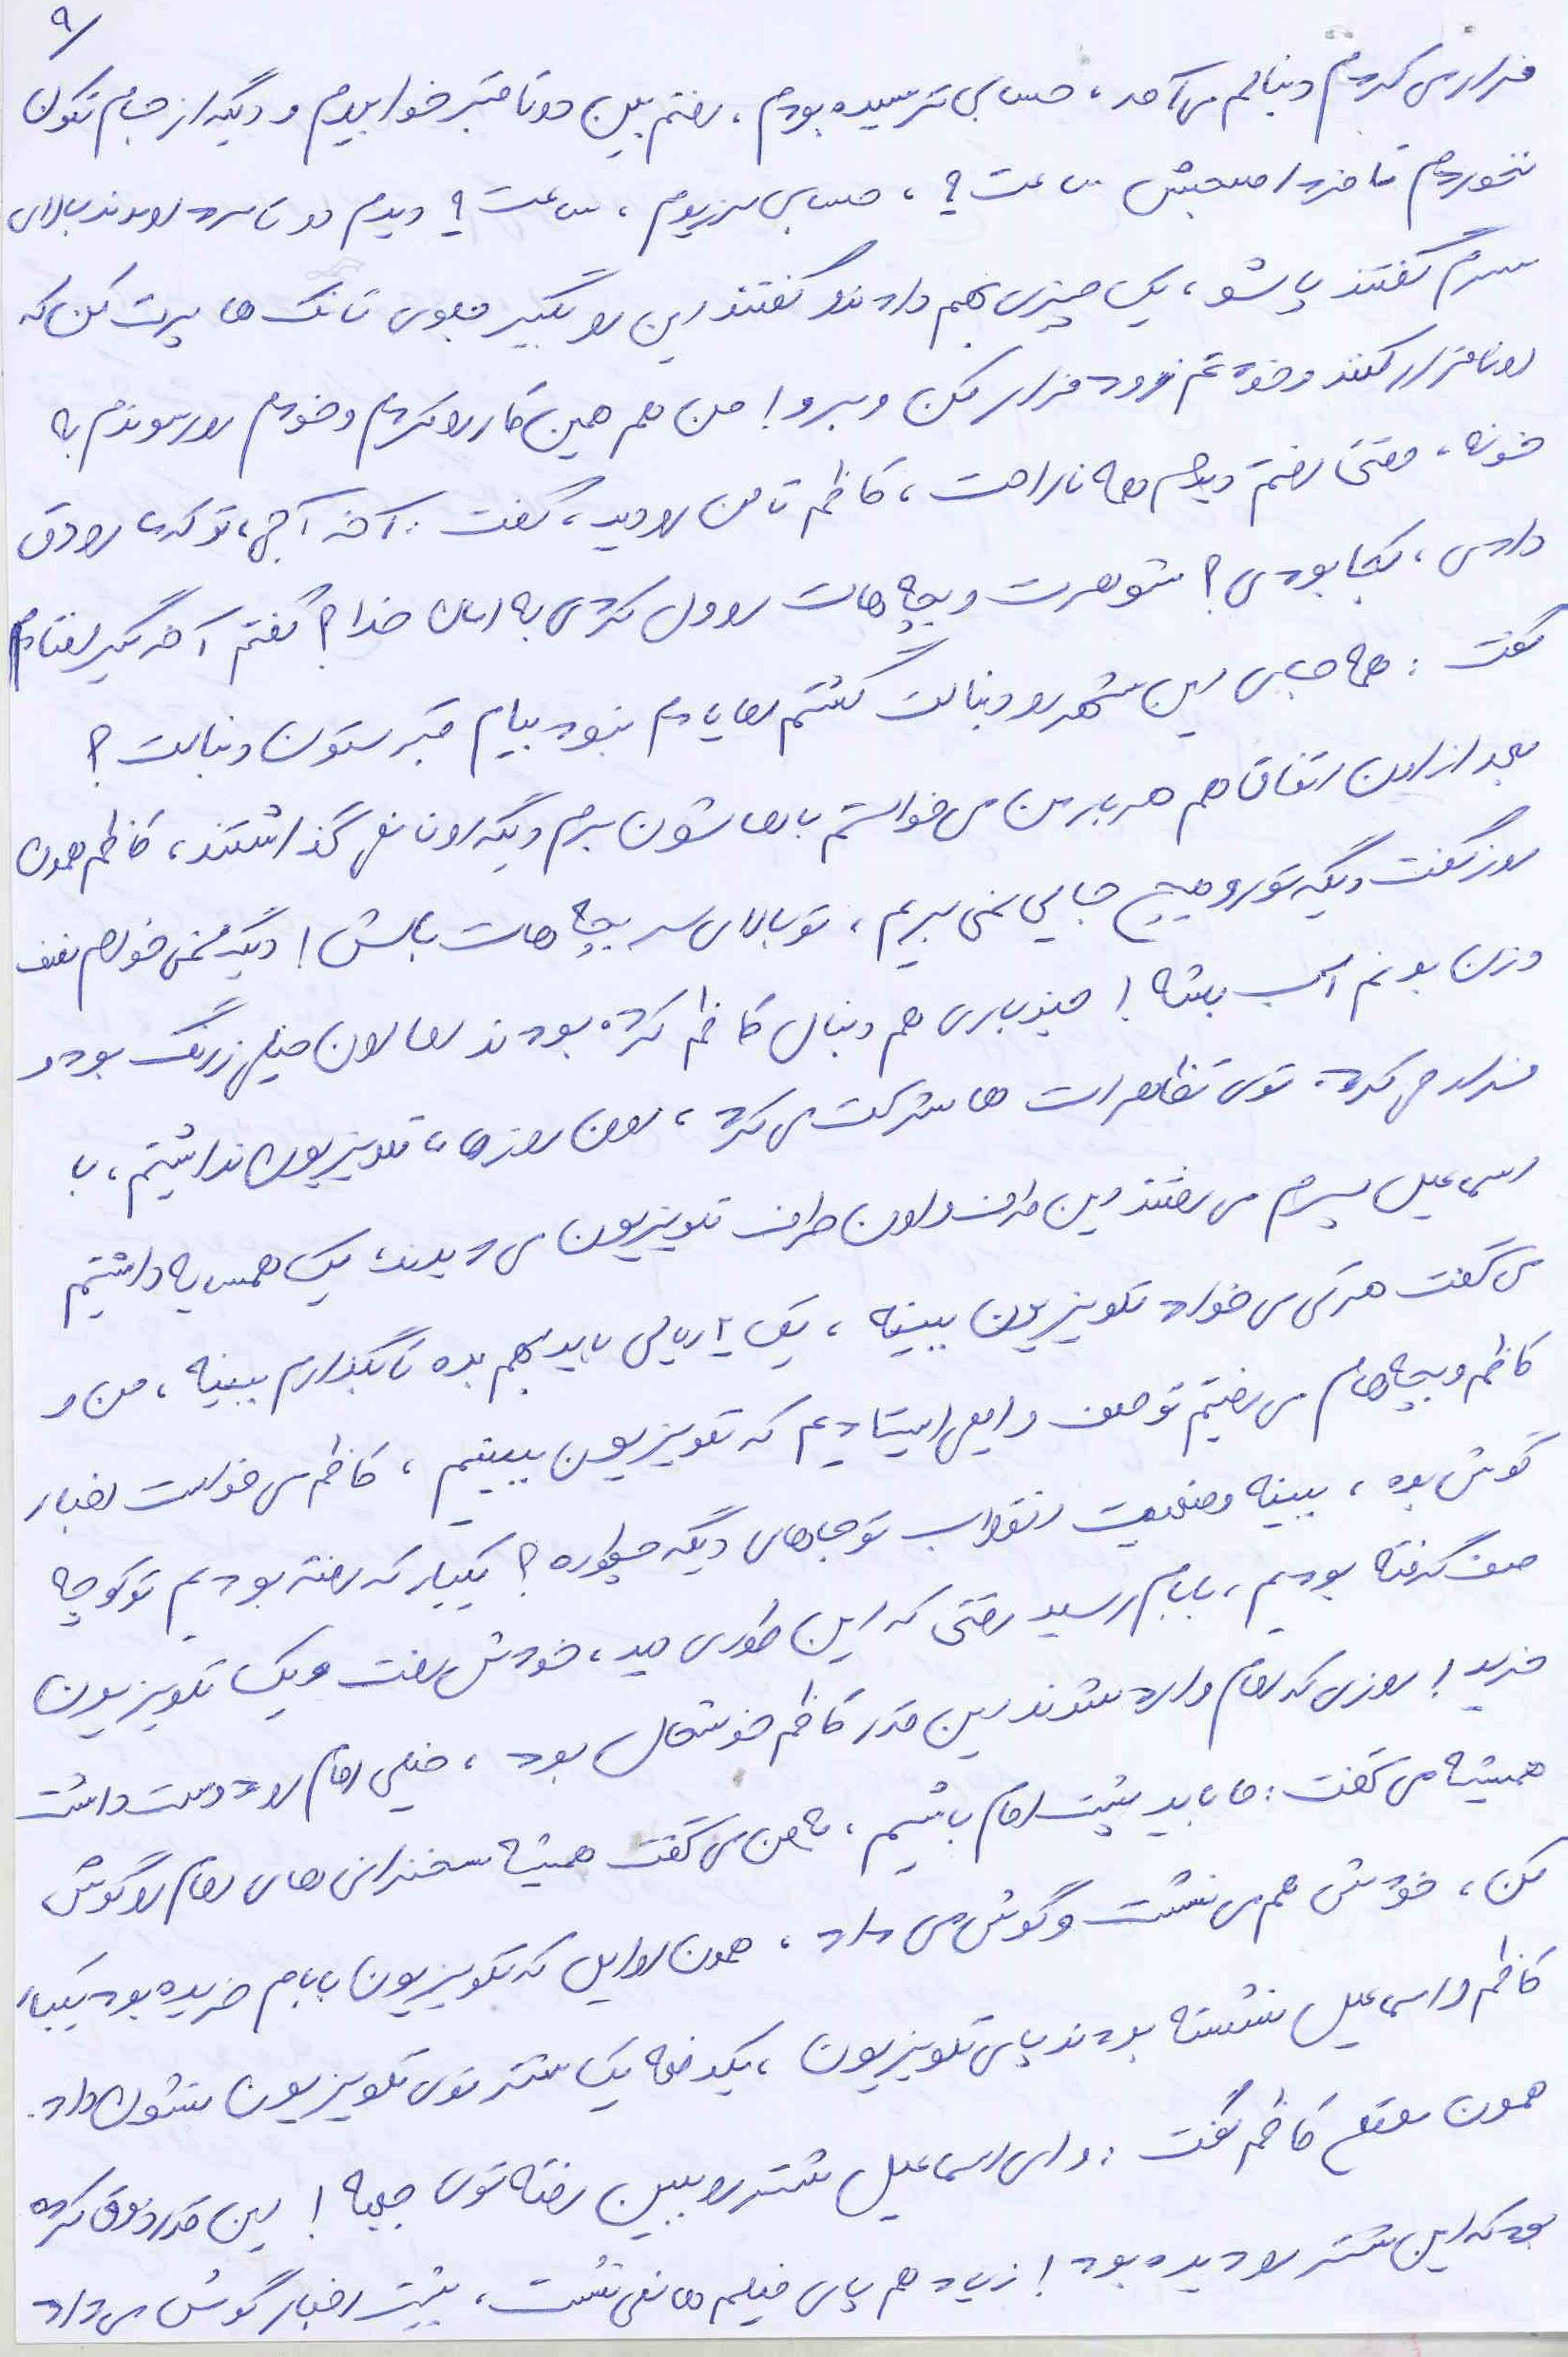 ۹/
فرار می کردم دنبالم می آمد، حسابی ترسیده بودم، رفتم بین دو تا قبر خوابیدم و دیگه از جام تکون
نخوردم تا فردا صبحش ساعت ۹، حسابی لرزیدم، ساعت ۹ دیدم دو تا مرد اومدند بالای
سرم گفتند پاشو، یک چیزی بهم دادند و گفتند این رو بگیر جلوی تانک ها پرت کن که
اونا فرار کنند و خودتم زود فرار کن و برو! من هم همین کار رو کردم و خودم رو رسوندم به
خونه، وقتی رفتم دیدم همه ناراحت، کاظم تا من رو دید، گفت: آخه آجی، تو که
داری، کجا بودی؟ شوهرت و بچه هات رو ول کردی به امان خدا؟ گفتم آخه گیر افتادم
گفت: همه جای این شهر رو دنبالت گشتم اما یادم نبود بیام قبرستون دنبالت؟
بعد از اون اتفاق هم هر بار من می خواستم باهاشون برم دیگه اونا نمی گذاشتند، کاظم همون
روز گفت دیگه تو رو هیچ جایی نمی بریم، تو بالای سر بچه هات باش! دیگه نمی خواهم نصف
وزن بدنم آب بشه! چند باری هم دنبال کاظم کرده بودند اما اون خیلی زرنگ بود و
فرار می کرد. توی تظاهرات ها شرکت می کرد، اون روزها ما تلویزیون نداشتیم، با
اسماعیل پسرم می رفتند این طرف و اون طرف تلویزیون می دیدند، یک همسایه داشتیم
می گفت هر کی می خواد تلویزیون ببینه، یک ۲ ریالی باید بهم بده تا بگذارم ببینه، من و
کاظم و بچه هام می رفتیم تو صف وایمی ایستادیم که تلویزیون ببینیم، کاظم می خواست اخبار
گوش بده، ببینه وضعیت انقلاب تو جاهای دیگه چطوره؟ یکبار که رفته بودیم تو کوچه
صف گرفته بودیم، بابام رسید وقتی که این طوری دید، خودش رفت و یک تلویزیون
خرید! روزی که امام وارد شدند این قدر کاظم خوشحال بود، خیلی امام رو دوست داشت
همیشه می گفت: ما باید پشت امام باشیم، به من می گفت همیشه سخنرانی های امام رو گوش
کن، خودش هم می نشست و گوش می داد، همون اوایل که تلویزیون بابام خریده بود یکبار
کاظم و اسماعیل نشسته بودند پای تلویزیون، یکدفعه یک شتر توی تلویزیون نشون داد.
همون موقع کاظم گفت: وای اسماعیل شتر رو ببین رفته توی جعبه! این قدر ذوق کرده
بود که این شتر رو دیده بود! زیاد هم پای فیلم ها نمی نشست، بیشتر اخبار گوش می داد